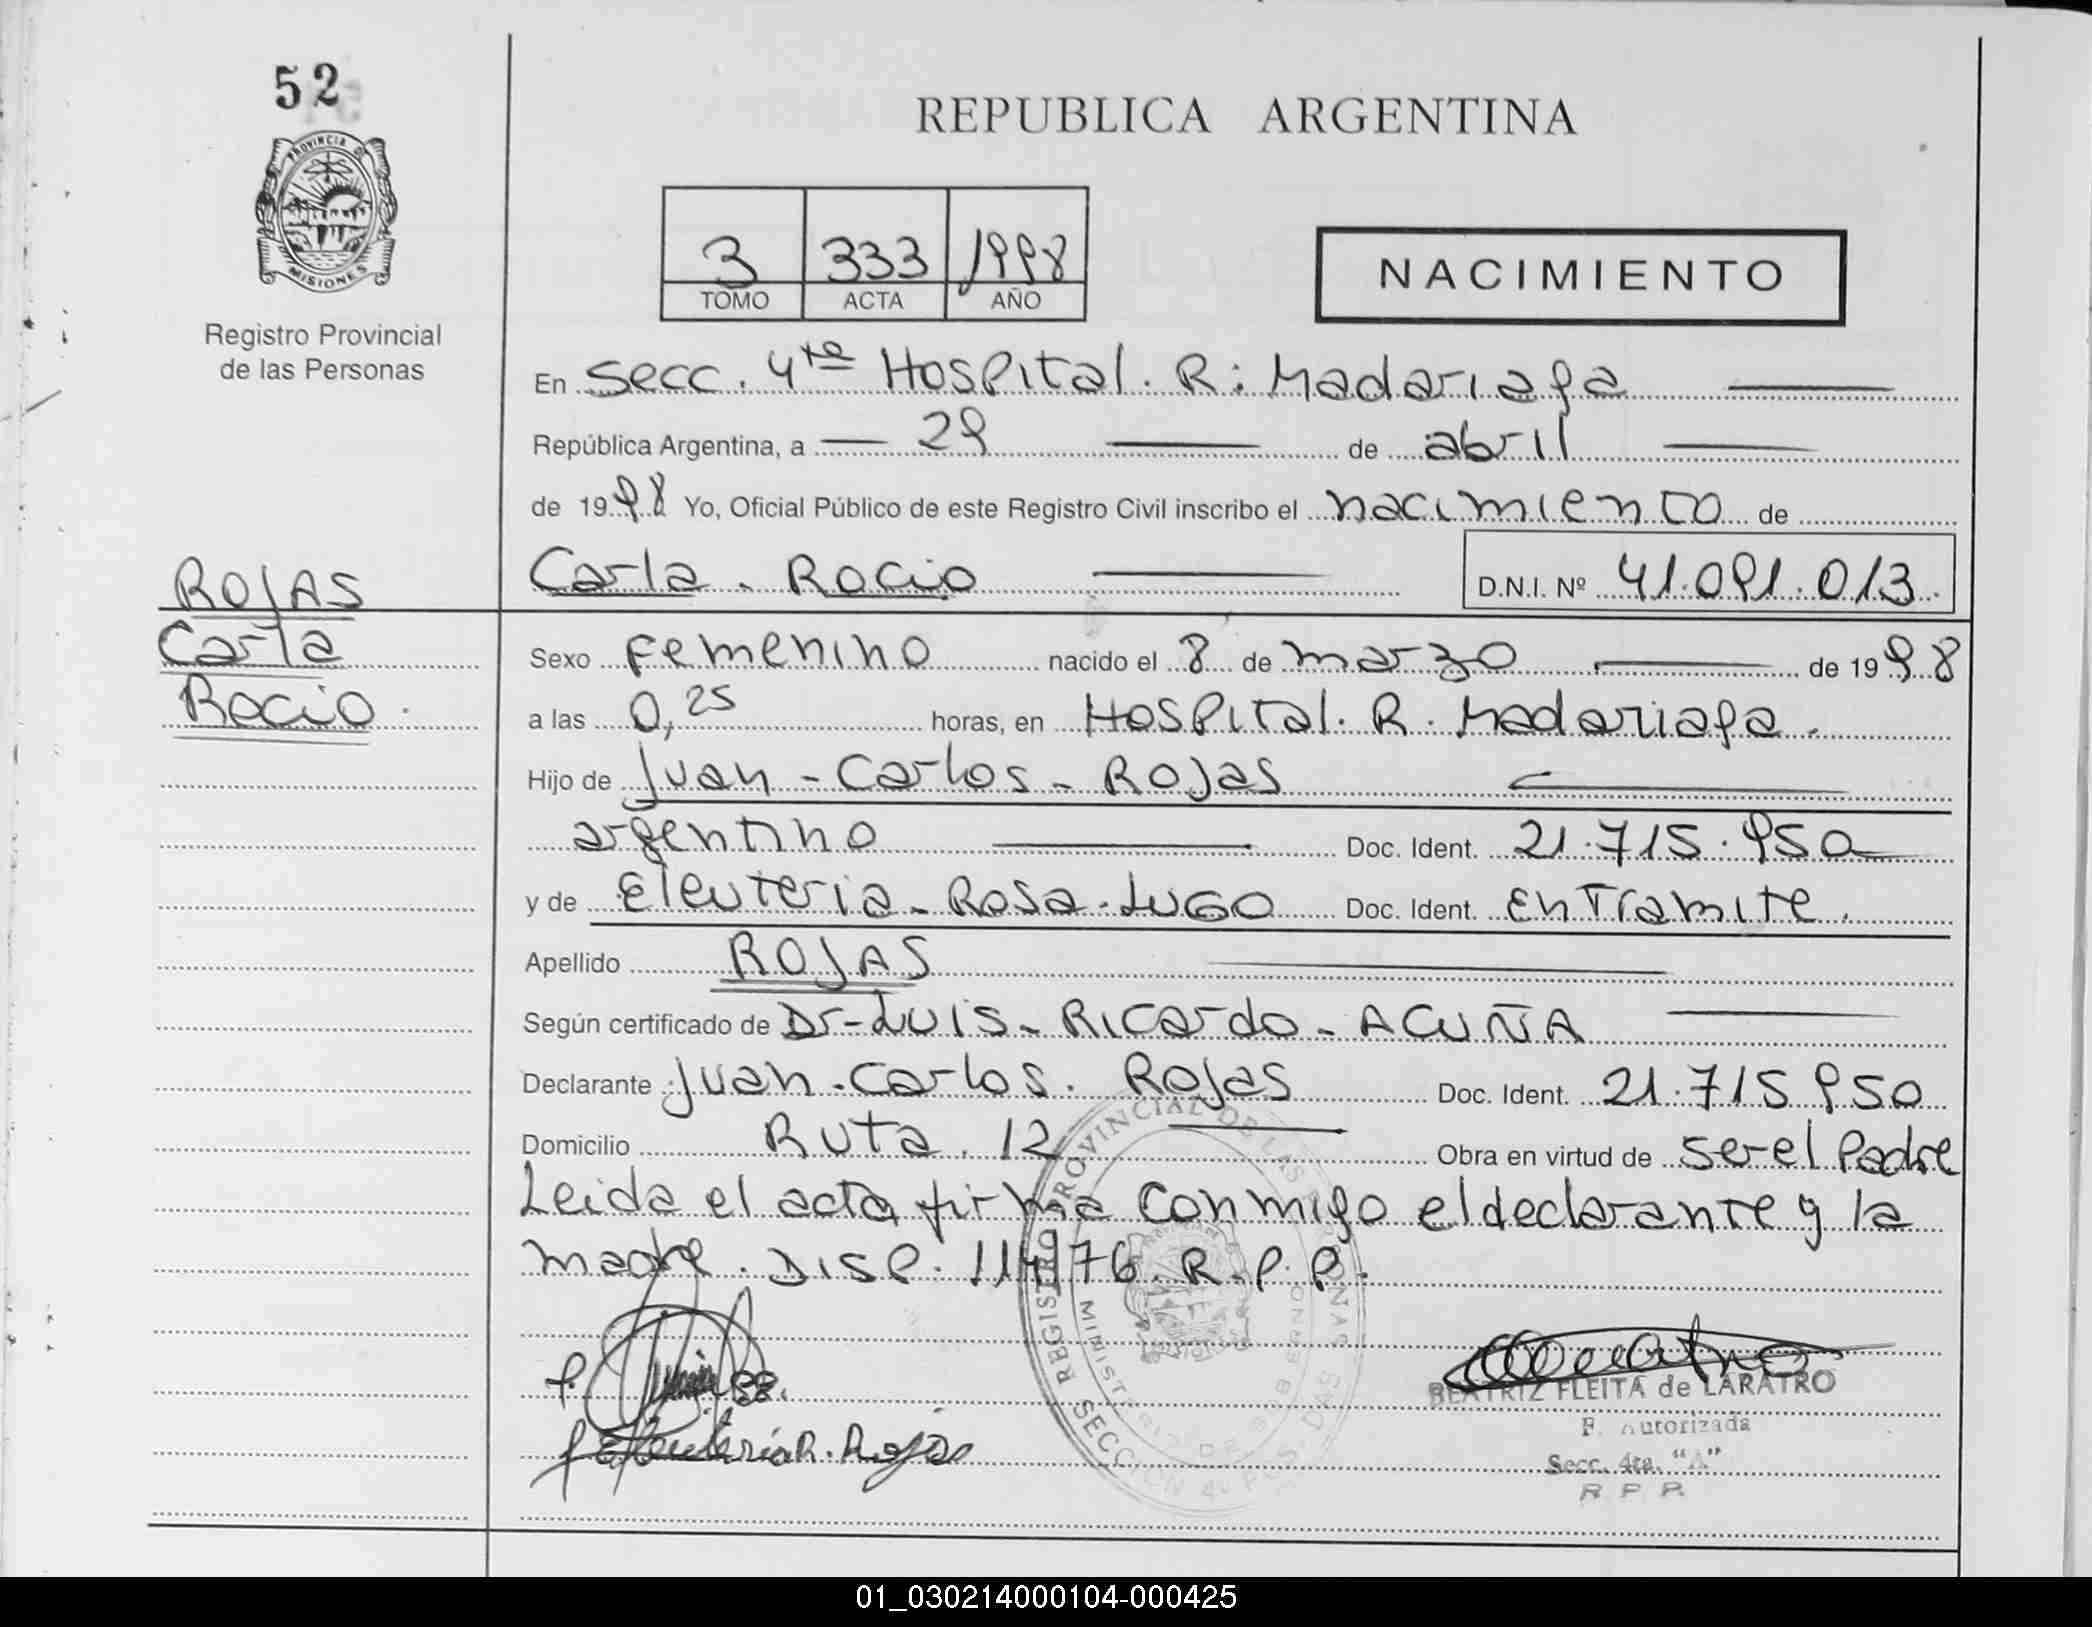 52
PROVINCIA D
MISIONES
Registro Provincial
de las Personas
REPUBLICA ARGENTINA
3 333 1998
TOMO ACTA AÑO
NACIMIENTO
En Secc. 4ta Hospital. R. Madariaga
República Argentina, a 29 de abril
de 1998 Yo, Oficial Público de este Registro Civil inscribo el nacimiento de
Carla - Rocio D.N.I. Nº 41.091.013
ROJAS
Carla
Rocio.
Sexo Femenino nacido el 8 de marzo de 1998
a las 0,25 horas, en Hospital. R. Madariaga.
Hijo de Juan - Carlos - Rojas
argentino Doc. Ident. 21.715.950
y de Eleuteria - Rosa - LUGO Doc. Ident. En Tramite.
Apellido ROJAS
Según certificado de Dr - Luis - Ricardo - ACUÑA
Declarante Juan - Carlos. Rojas Doc. Ident. 21.715950
Domicilio Ruta. 12 Obra en virtud de ser el Padre
Leida el acta firma conmigo el declarante y la
madre. Disp. 114/76. R.P.P.
REGISTRO PROVINCIAL DE LAS PERSONAS
MINISTERIO DE GOBIERNO
SECCION 4a POSADAS
Eleuteria R. Rojas
BEATRIZ FLEITA de LARATRO
F. Autorizada
Secc. 4ta. "A"
R P P.
01_030214000104-000425